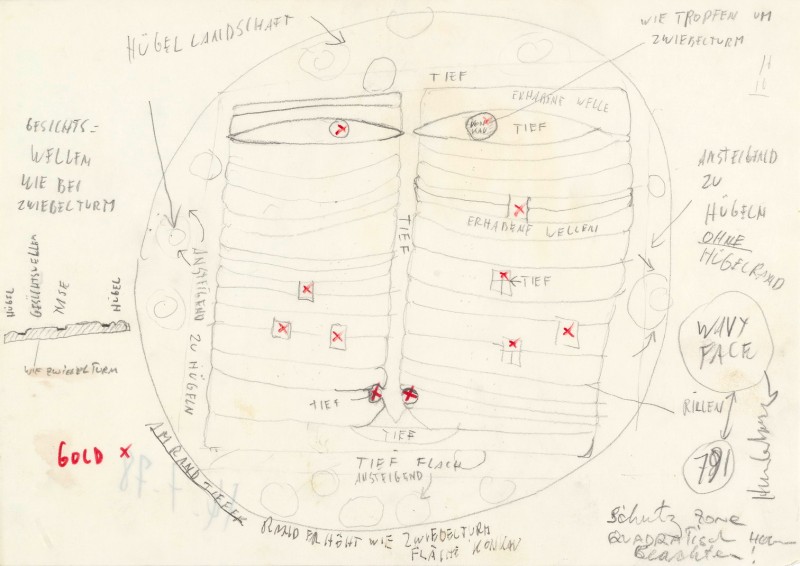 HÜGELLANDSCHAFT
WIE TROPFEN UM
ZWIEBELTURM
TIEF
ERHABENE WELLE
TIEF
GESICHTS=
WELLEN
WIE BEI
ZWIEBELTURM
ANSTEIGEND
ZU
HÜGELN
OHNE
HÜGELRAND
ERHABENE WELLEN
TIEF
ANSTEIGEND ZU HÜGELN
TIEF
HÜGEL
GESICHTSWELLEN
NASE
HÜGEL
WIE ZWIEBELTURM
WAVY
FACE
TIEF
RILLEN
TIEF
GOLD x
AM RAND TIEFER
TIEF FLACH
ANSTEIGEND
791
RAND ERHÖHT WIE ZWIEBELTURM
FLÄCHE KONKAV
Schutz Zone
QUADRATISCH
Beachten!